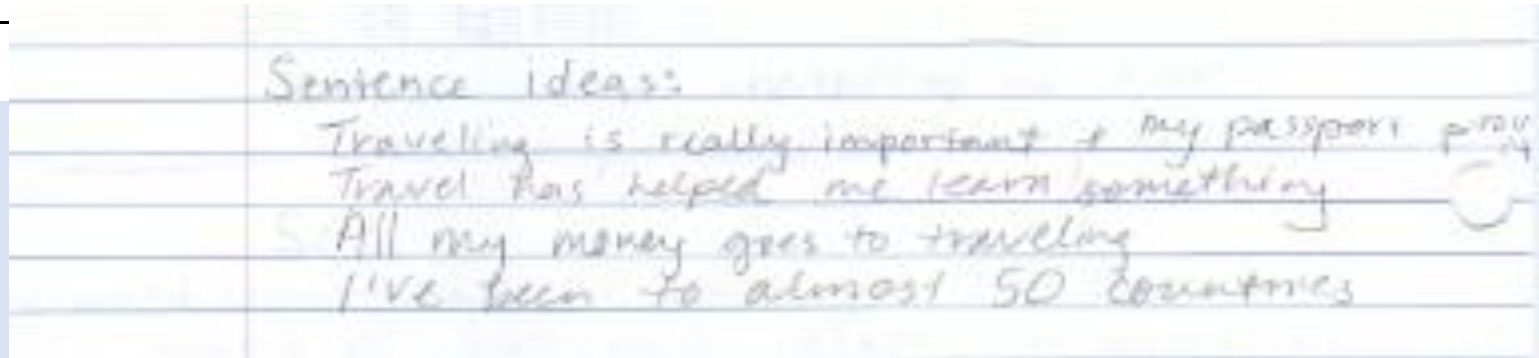 Sentence ideas:
Traveling is really important + my passport
Travel has helped me learn something
All my money goes to traveling
I've been to almost 50 countries